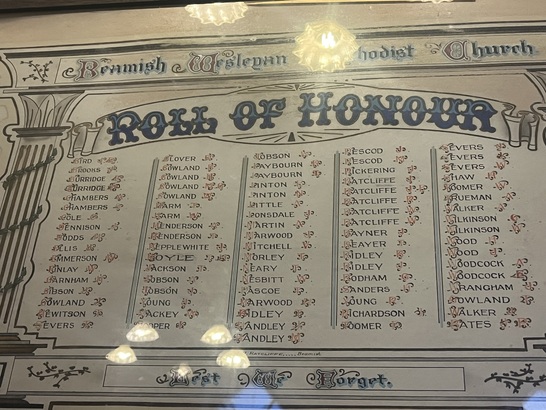 Beamish Wesleyan Methodist Church.
ROLL OF HONOUR
BIRD
BROOKS
BURRIDGE
BURRIDGE
CHAMBERS
CHAMBERS
COLE
DENNISON
DODDS
ELLIS
EMMERSON
FINLAY
FARNHAM
GIBSON
GOWLAND
HEWITSON
SEVERS
GLOVER
GOWLAND
GOWLAND
GOWLAND
HARM
HARM
HENDERSON
HENDERSON
HEPPLEWHITE
HOYLE
JACKSON
JOBSON
JOBSON
YOUNG
MACKEY
HOPER
JOBSON
LAYBOURN
LAYBOURN
LINTON
LINTON
LITTLE
LONSDALE
MARTIN
MARWOOD
MITCHELL
MORLEY
NEARY
NESBITT
PASCOE
HARWOOD
RIDLEY
HANDLEY
HANDLEY
PESCOD
PESCOD
PICKERING
RATCLIFFE
RATCLIFFE
RATCLIFFE
RATCLIFFE
RATCLIFFE
RAYNER
REAVER
RIDLEY
RIDLEY
RODHAM
SANDERS
YOUNG
RICHARDSON
TOOMER
SEVERS
SEVERS
SEVERS
SHAW
TOOMER
TRUEMAN
WALKER
WILKINSON
WILKINSON
WOOD
WOOD
WOODCOCK
WOODCOCK
WRANGHAM
GOWLAND
WALKER
BATES
Lest We Forget.